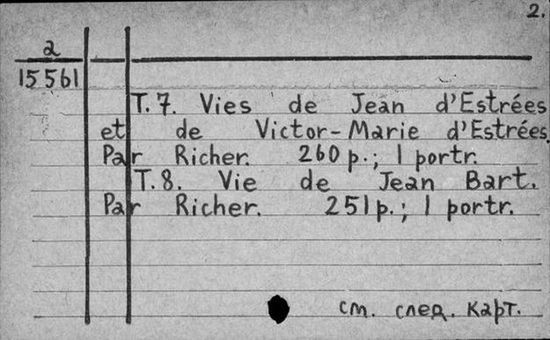 2.
2
15561
T. 7. Vies de Jean d'Estrées
et de Victor-Marie d'Estrées.
Par Richer. 260 p.; 1 portr.
T. 8. Vie de Jean Bart.
Par Richer. 251 p.; 1 portr.
см. след. карт.